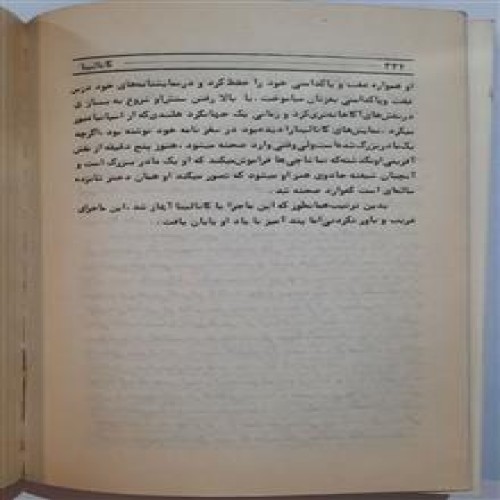 ۳۳۲ کاتالینا
او همواره عفت و پاکدامنی خود را حفظ کرد و در نمایشنامه‌های خود درس
عفت و پاکدامنی بمردمان میآموخت . با بالا رفتن سنش او شروع به بازی
در نقش‌های آگاهانه‌تری کرد و زمانی یک جهانگرد هلندی که از اسپانیا عبور
میکرد . نمایش‌های کاتالینا را دید خود در سفرنامه خود نوشته بود : اگرچه
یک مادربزرگ شده است ولی وقتی وارد صحنه میشود ، هنوز پنج دقیقه از نقش
آفرینی او نگذشته که تماشاچی‌ها فراموش میکنند که او یک مادر بزرگ است و
آنچنان شیفته جادوی هنر او میشوند که تصور میکنند او همان دختر شانزده
ساله‌ای است که وارد صحنه شد .
بدین ترتیب همانطور که این ماجرا با کاتالینا آغاز شد ، این ماجرای
غریب و باور نکردنی اما پند آمیز با یاد او پایان یافت .